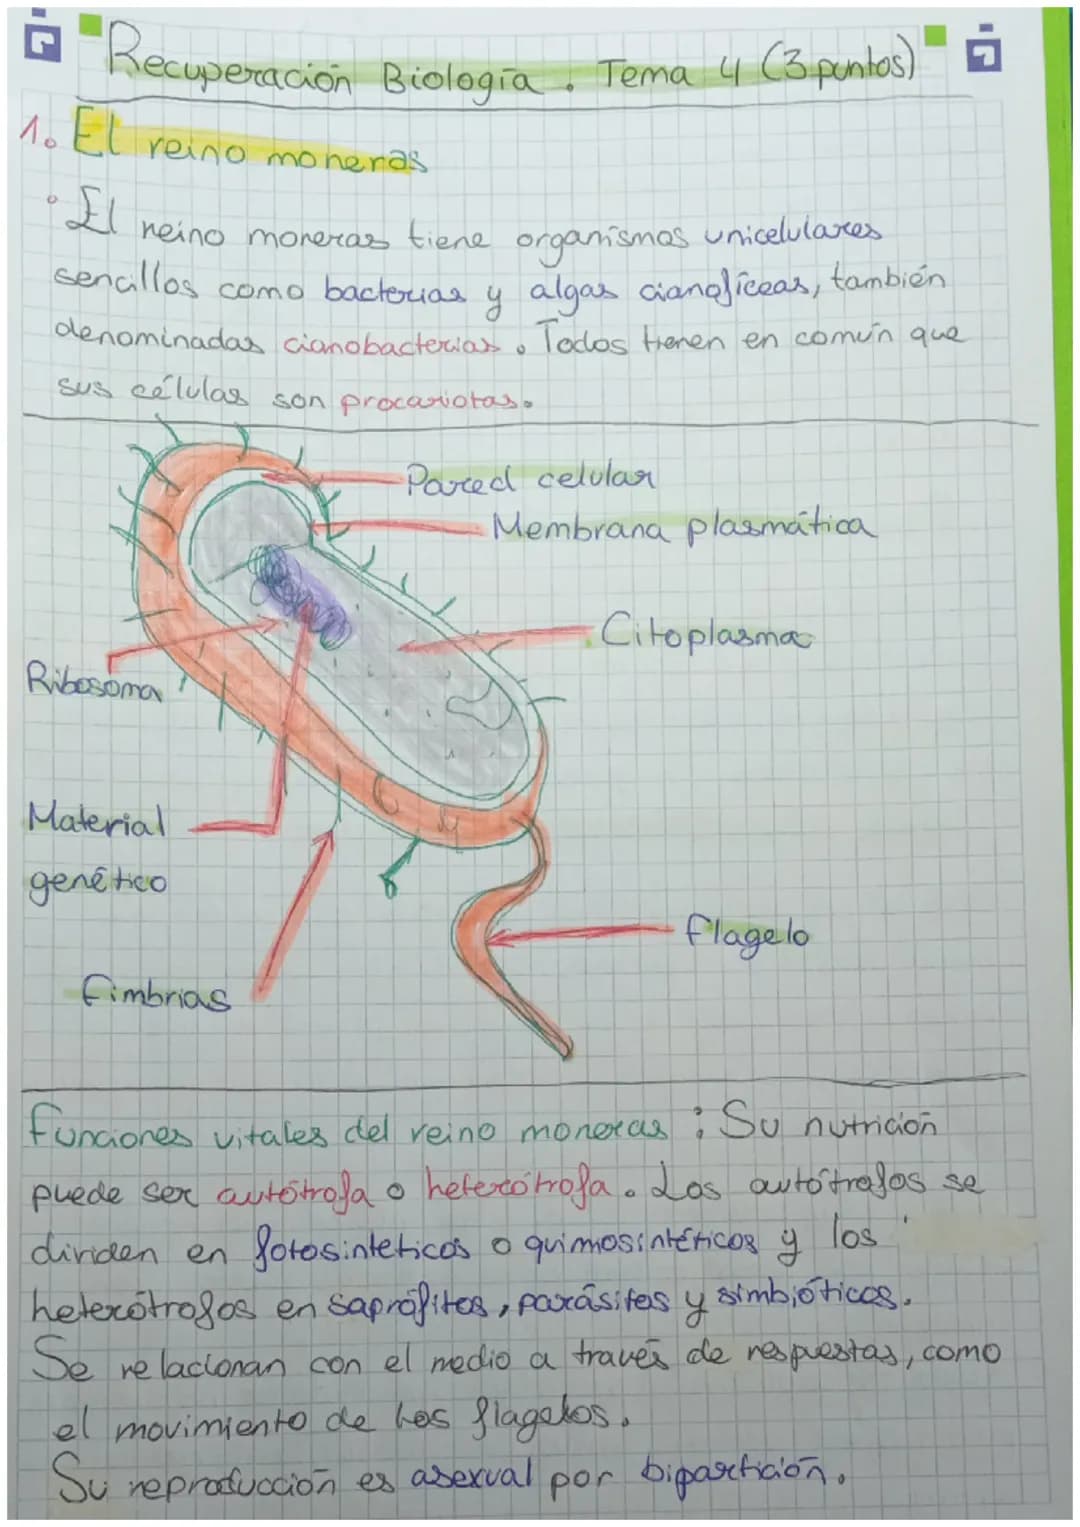 Recuperación Biología. Tema 4 (3 puntos)
1. El reino moneras
• El reino moneras tiene organismos unicelulares
sencillos como bacterias y algas cianofíceas, también
denominadas cianobacterias. Todos tienen en común que
sus células son procariotas.
Pared celular
Membrana plasmática
Citoplasma
Ribosoma
Material
genético
Flagelo
Fimbrias
Funciones vitales del reino moneras: Su nutrición
puede ser autótrofa o heterótrofa. Los autótrofos se
dividen en fotosinteticos o quimosintéticos y los
heterótrofos en saprófitos, parásitos y simbióticos.
Se relacionan con el medio a través de respuestas, como
el movimiento de los flagelos.
Su reproducción es asexual por bipartición.